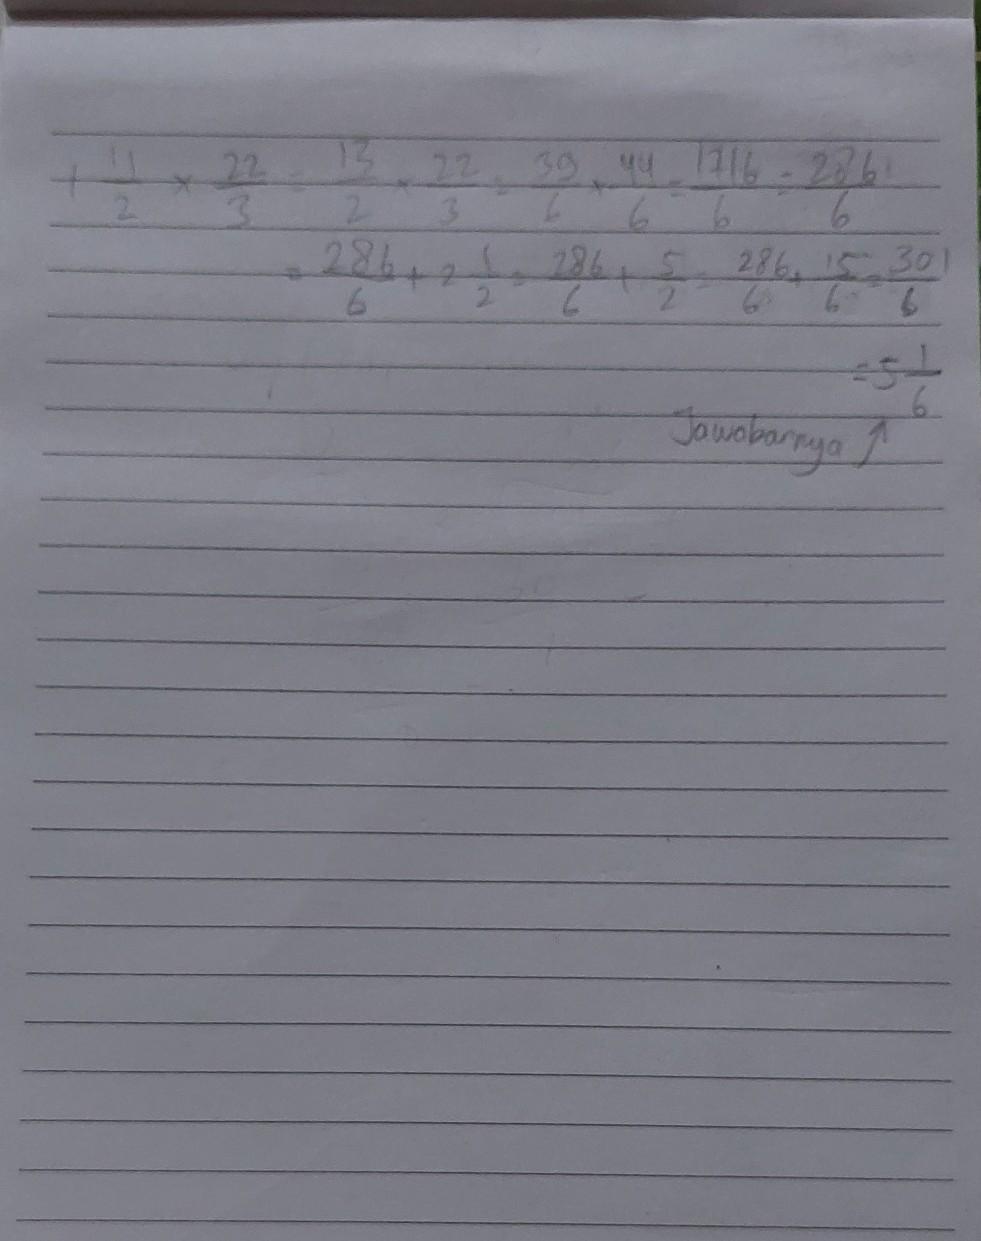 1 11/2 × 22/3 = 13/2 × 22/3 = 39/6 × 44/6 = 1716/6 = 286/6
= 286/6 + 2 1/2 = 286/6 + 5/2 = 286/6 + 15/6 = 301/6
= 5 1/6
Jawabannya ↑